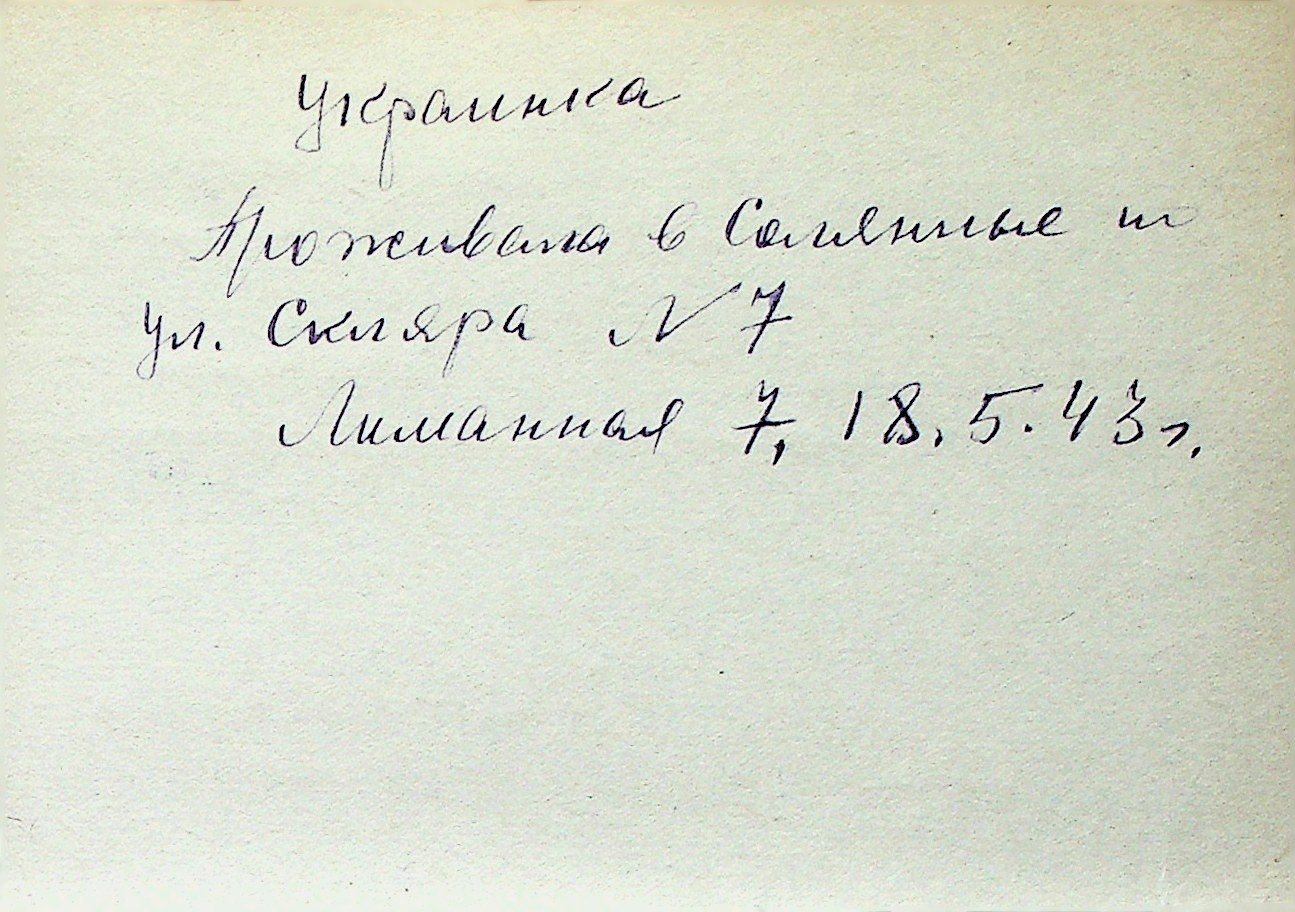 Украинка
Проживала в Солянные
ул. Скляра N 7
Лиманная 7, 18.5.43г.